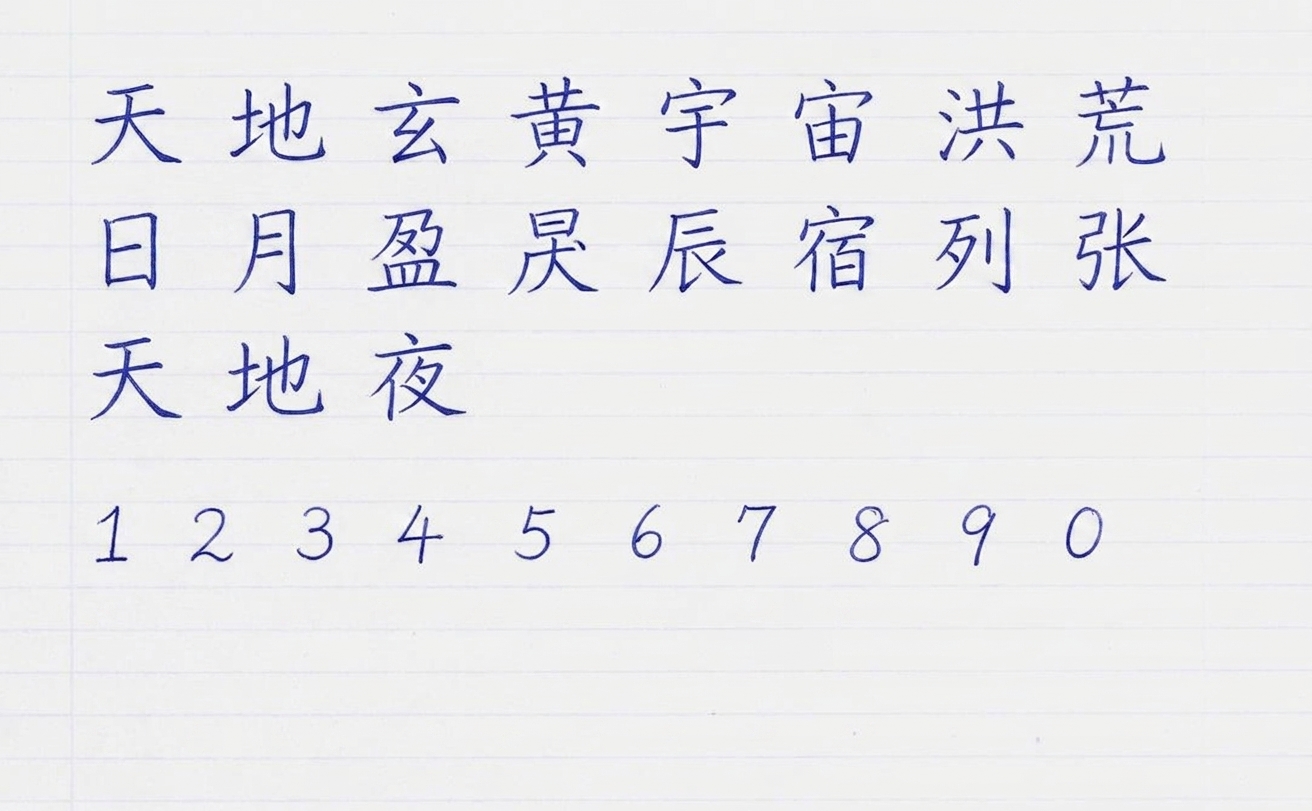 天 地 玄 黄 宇 宙 洪 荒
日 月 盈 昃 辰 宿 列 张
天 地 夜
1 2 3 4 5 6 7 8 9 0